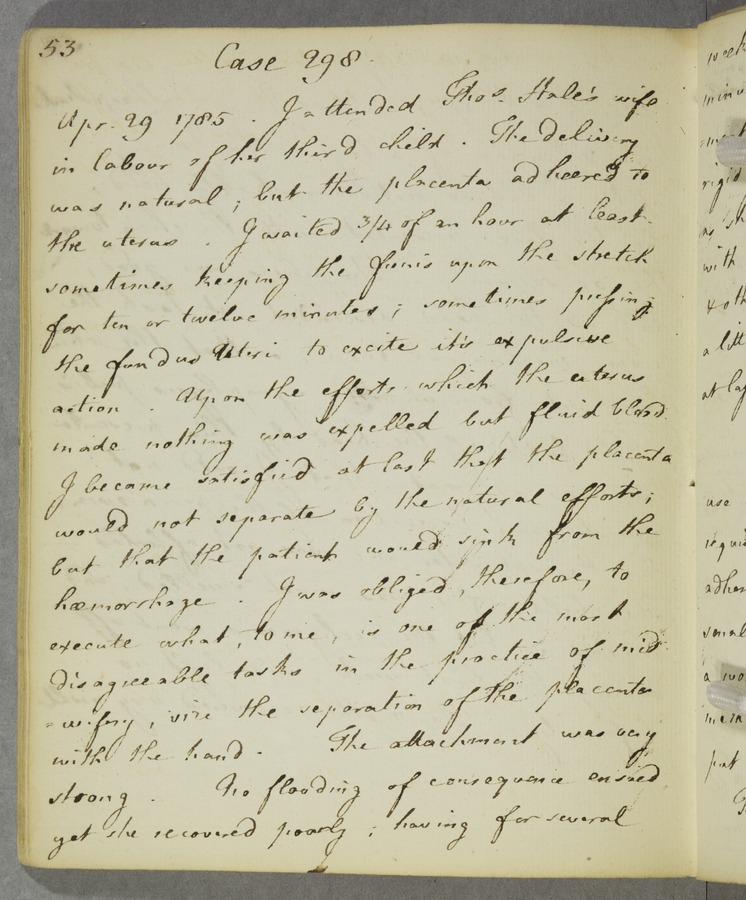 53
Case 298.
Apr. 29 1785. I attended Thos. Hale's wife
in labour of her third child. The delivery
was natural; but the placenta adheered to
the uterus. I waited 3/4 of an hour at least
sometimes keeping the funis upon the stretch
for ten or twelve minutes; sometimes pressing
the fundus Uteri to excite it's expulsive
action. Upon the efforts which the uterus
made nothing was expelled but fluid blood.
I became satisfied at last that the placenta
would not separate by the natural efforts;
but that the patient would sink from the
hæmorrhage. I was obliged, therefore, to
execute what, to me, is one of the most
disagreeable tasks in the practice of mid
=wifery, vize the separation of the placenta
with the hand. The attachment was very
strong. No flooding of consequence ensued
yet she recovered poorly; having for several
week
minu
rigid
with
a litt
at las
use
requi
adher
small
a wo
mean
put